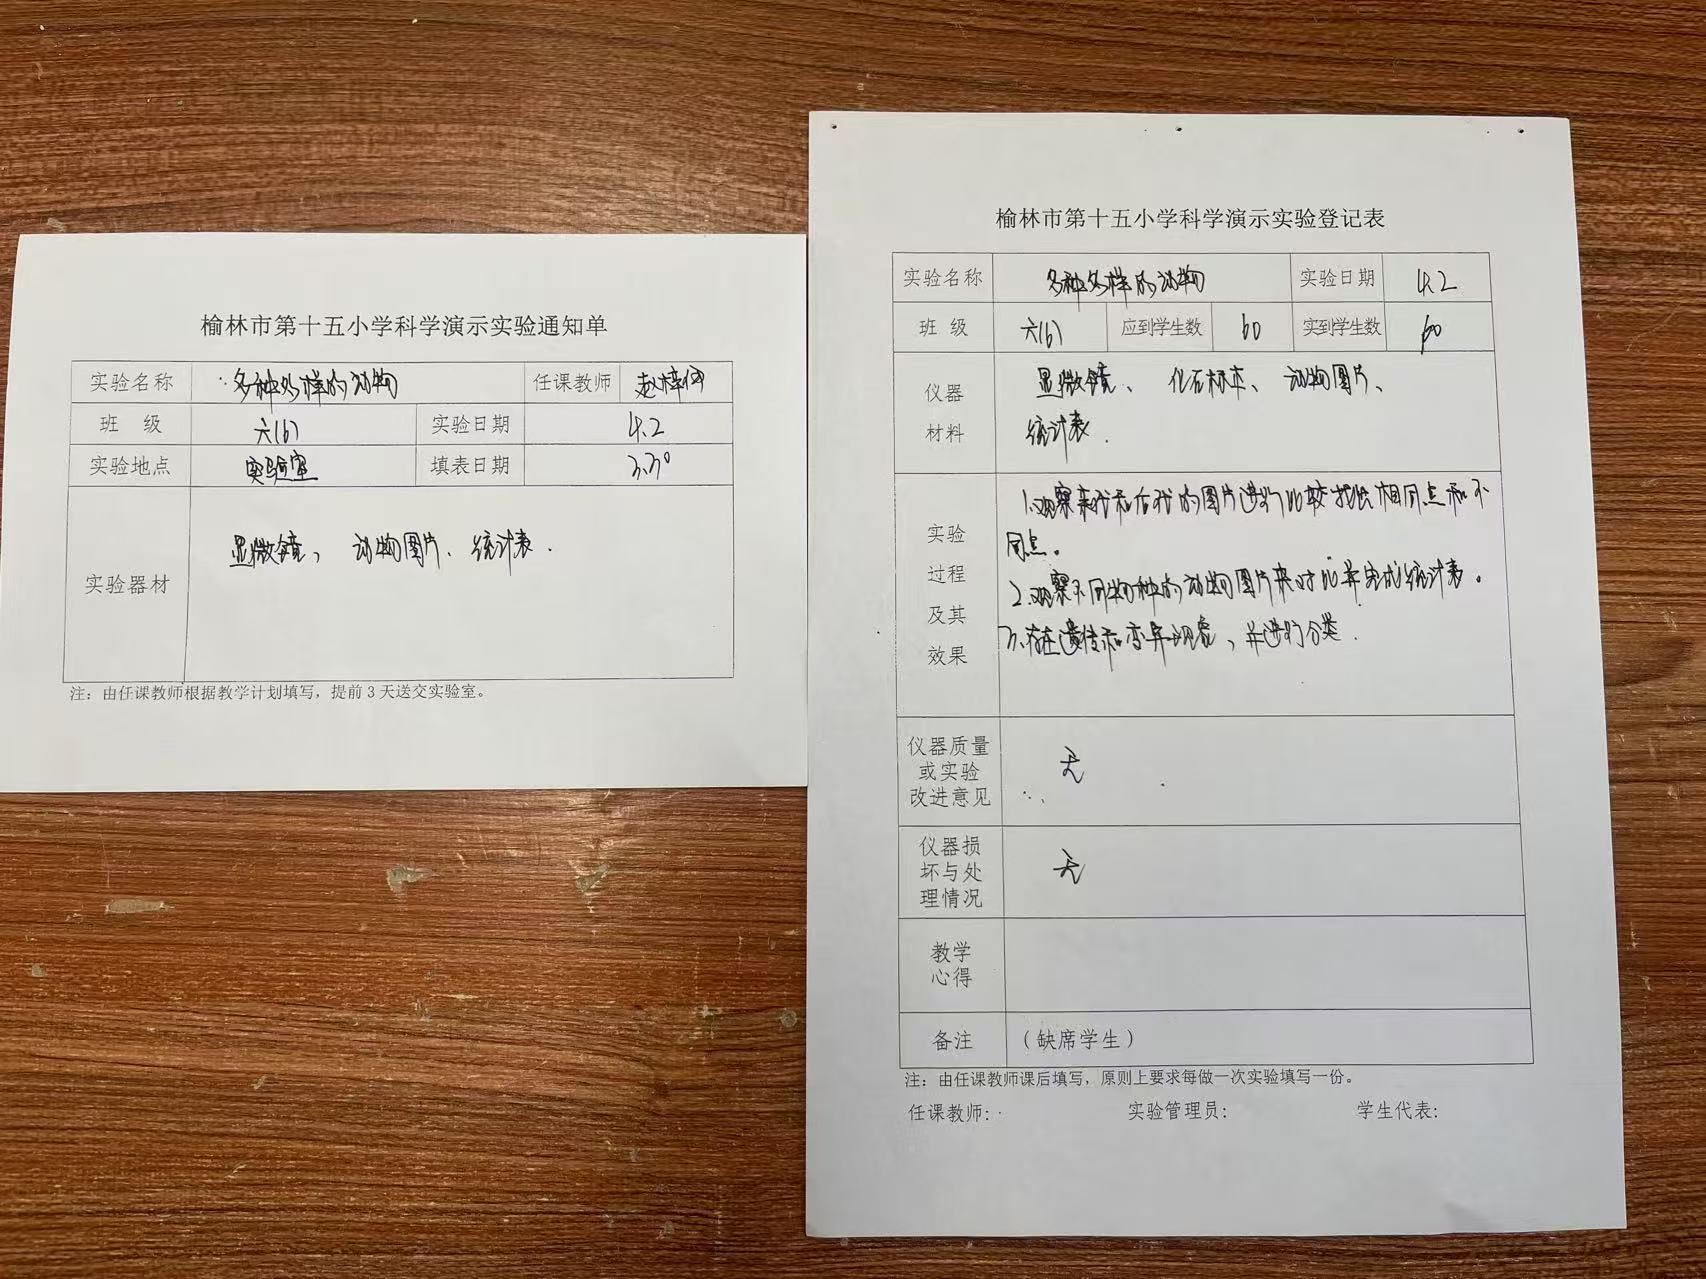 榆林市第十五小学科学演示实验通知单
实验名称 多种多样的动物 任课教师
班 级 六(6) 实验日期 4.2
实验地点 实验室 填表日期 3.30
实验器材 显微镜、 动物图片、统计表.
注：由任课教师根据教学计划填写，提前3天送交实验室。
榆林市第十五小学科学演示实验登记表
实验名称 多种多样的动物 实验日期 4.2
班 级 六(6) 应到学生数 60 实到学生数 60
仪器 显微镜、 化石标本、 动物图片、
材料 统计表.
实验
过程
及其
效果
1.观察亲代和后代的图片进行比较找出相同点和不
同点。
2.观察不同物种的动物图片来对比并完成统计表。
3.存在遗传和变异现象，并进行分类.
仪器质量
或实验
改进意见
无
仪器损
坏与处
理情况
无
教学
心得
备注 （缺席学生）
注：由任课教师课后填写，原则上要求每做一次实验填写一份。
任课教师: 实验管理员: 学生代表: